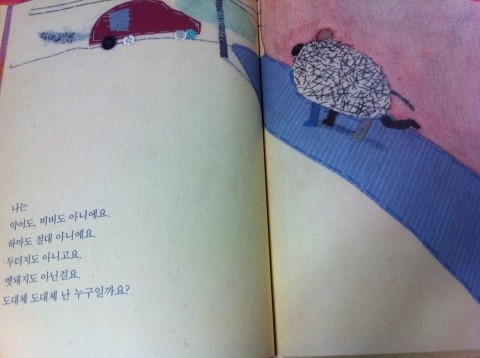 나는
악어도, 비버도 아니에요.
하마도 절대 아니에요.
두더지도 아니고요.
멧돼지도 아닌걸요.
도대체 도대체 난 누구일까요?